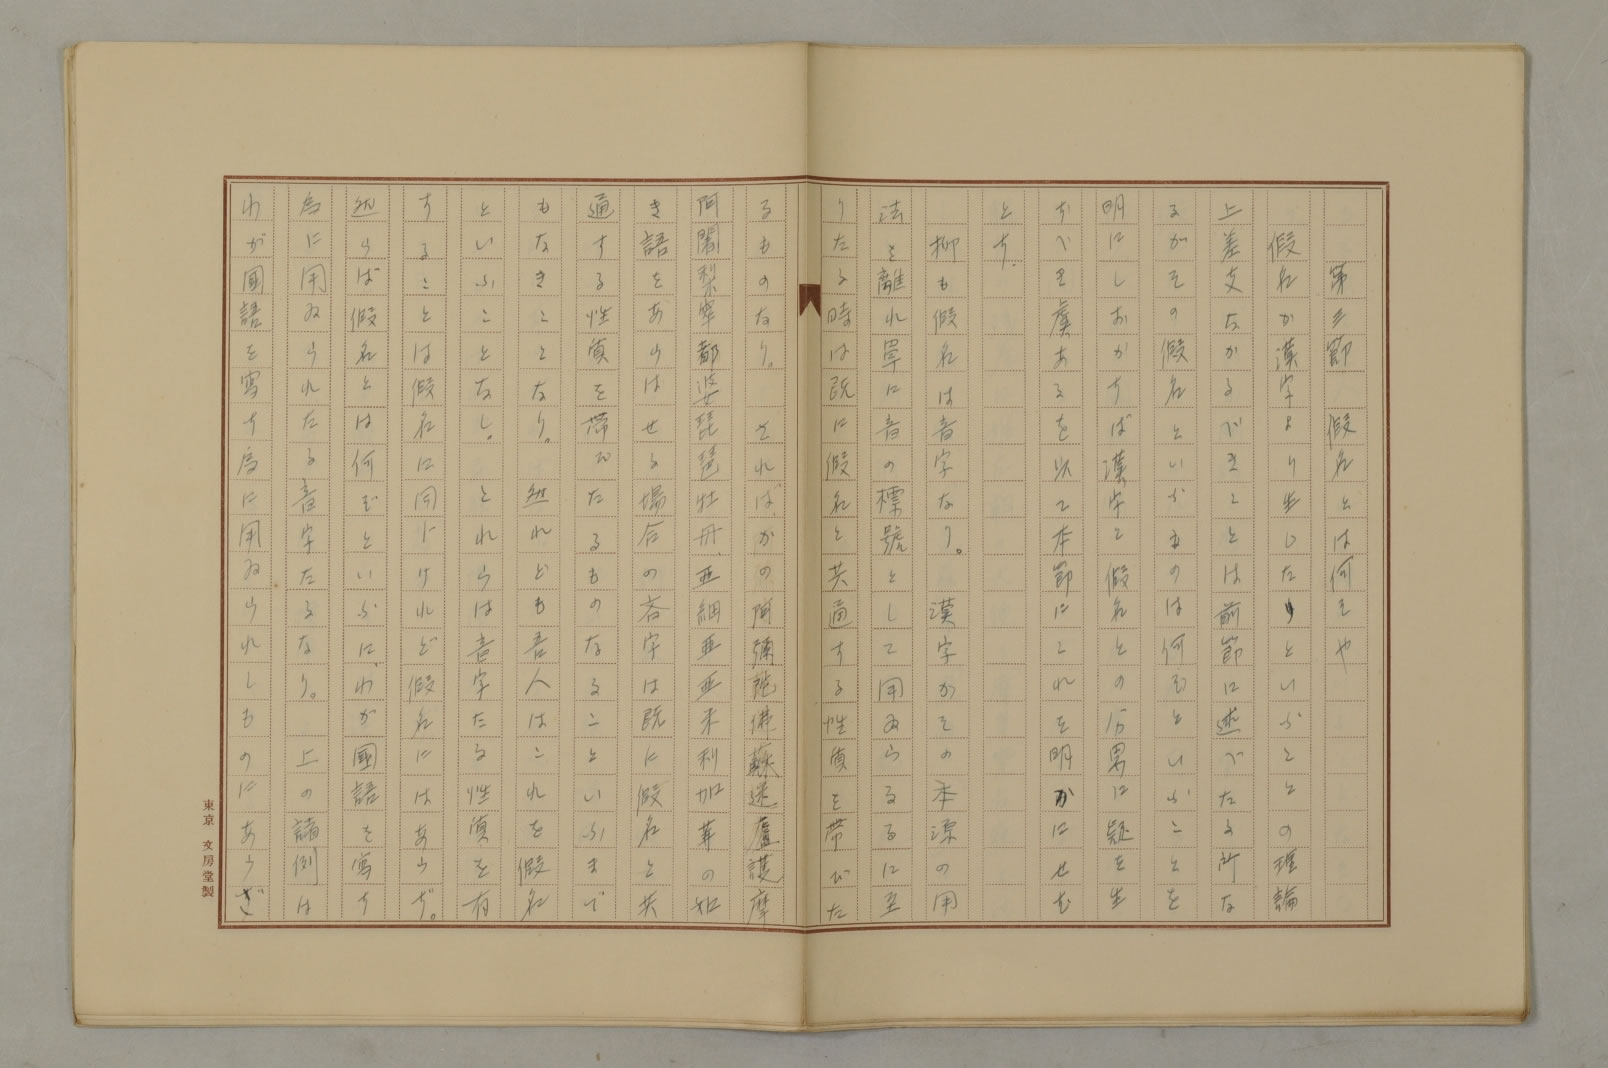 第三節　假名とは何ぞや
假名か漢字より生じたりといふことの理論
上差支なかるべきことは前節に述べたる所な
るがその假名といふものは何ぞといふことを
明にしおかずば漢字と假名との分界に疑を生
ずべき虞あるを以て本節にこれを明かにせむ
とす。
抑も假名は音字なり。　漢字かその本源の用
法を離れ単に音の標號として用ゐらるるに至
りたる時は既に假名と共通する性質を帯びた
るものなり。　されば、かの阿彌陀佛蘇迷盧護摩
阿闍梨窣都婆琵琶牡丹、亜細亜亜米利加等の如
き語をあらはせる場合の各字は既に假名と共
通する性質を帯びたるものなることいふまで
もなきことなり。　然れども吾人はこれを假名
といふことなし。　これらは音字たる性質を有
することは假名に同じけれど假名にはあらず。
然らば假名とは何ぞといふに、わが國語を寫す
為に用ゐられたる音字たるなり。　上の諸例は
わが國語を寫す為に用ゐられしものにあらざ
東京　文房堂製